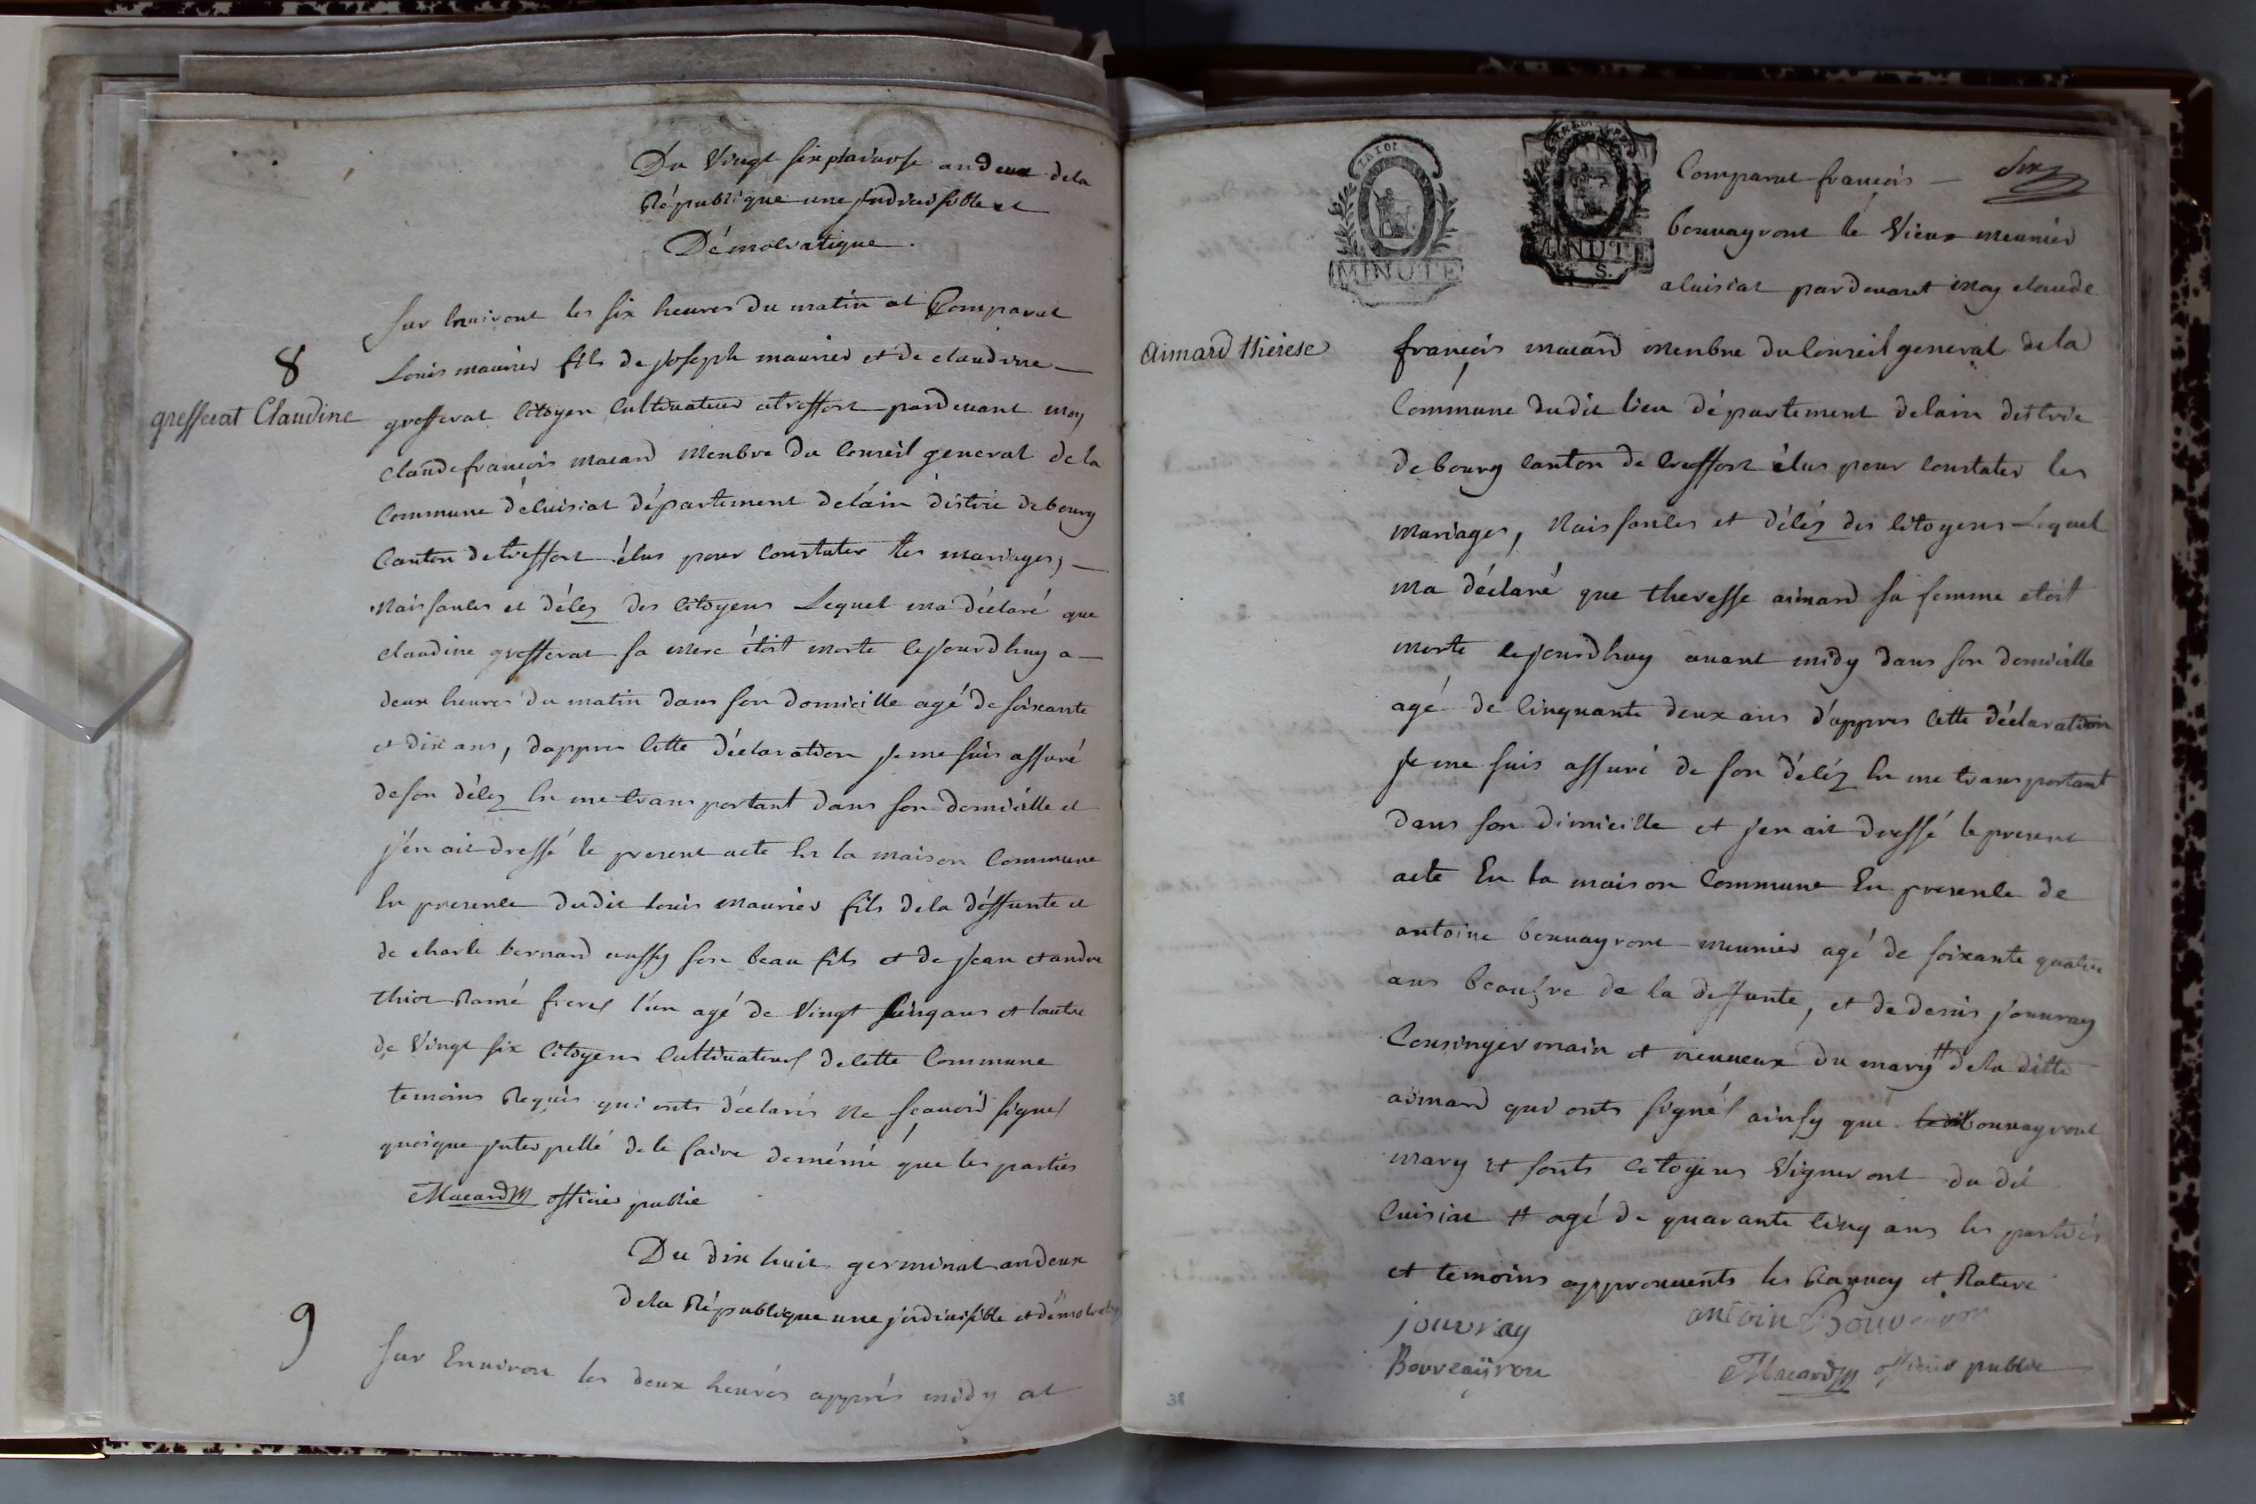 Du Vingt six pluviose an deux dela
République une jndivisible et
Démocratique.
sur Environt les six heures Du matin at Comparut
8
Louis maurier fils de joseph maurier et de claudine
grefferat Claudine
grefferat Citoyen Cultivateur atreffort pardevant moy
claude françois macard Menbre du Conseil general de la
Commune deCuisiat département delain distric de bourg
Canton de treffort élus pour Constater les mariages,
Naissances et décéz des Citoyens Lequel ma déclaré que
claudine grefferat sa mere étoit morte cejourdhuy a
deux heures du matin dans son domicille agé de soixante
et dix ans, dappres Cette déclaration je me suis assuré
de son décéz En me transportant dans son domicille et
j'en ait dressé le present acte En la maison Commune
En presence dudit Louis maurier fils de la déffunte et
de charle bernard cussy son beau fils et de jean et andre
thiot Ramé freres l'un agé de Vingt Cinq ans et lautre
de Vingt six Citoyens Cultivateurs de Cette Commune
temoins Requis qui onts déclarés Ne sçavoir signer
quoique jnterpellé de le faire de mémé que les parties
Macard officier public
Du dix huit germinal an deux
dela République une jndivisible et démocratiq
9
sur Environ les deux heurés apprés midy at
MINUTE
MINUTE
S.
Comparut françois
bouvayront le Vieux meunier
aCuisiat pardevant moy claude
Aimard thérèse
françois macard Menbre du Conseil general de la
Commune dudit lieu département delain distric
de bourg Canton de treffort élus pour Constater les
Mariages, Naissances et décéz des Citoyens Lequel
ma déclaré que theresse aimard sa femme etoit
morte cejourdhuy avant midy dans son domicille
agé de Cinquante deux ans d'appres Cette déclaration
je me suis assuré de son décéz En me transportant
dans son dimicille et j'en ait dressé le present
acte En la maison Commune En presence de
antoine bouvayront meunier agé de soixante quatre
ans beaufre de la deffunte, et de denis jouvray
Cousingermain et neuveux du mary # dela ditte
aimard qui onts signés ainsy que bouvayront
mary et sonts Citoyens Vigneront du dit
Cuisiat # agé de quarante cinq ans les partiés
et temoins approuvents les et Rature
jouvray
antoin Bouveiron
Bouveayrou
Macard officier public
38